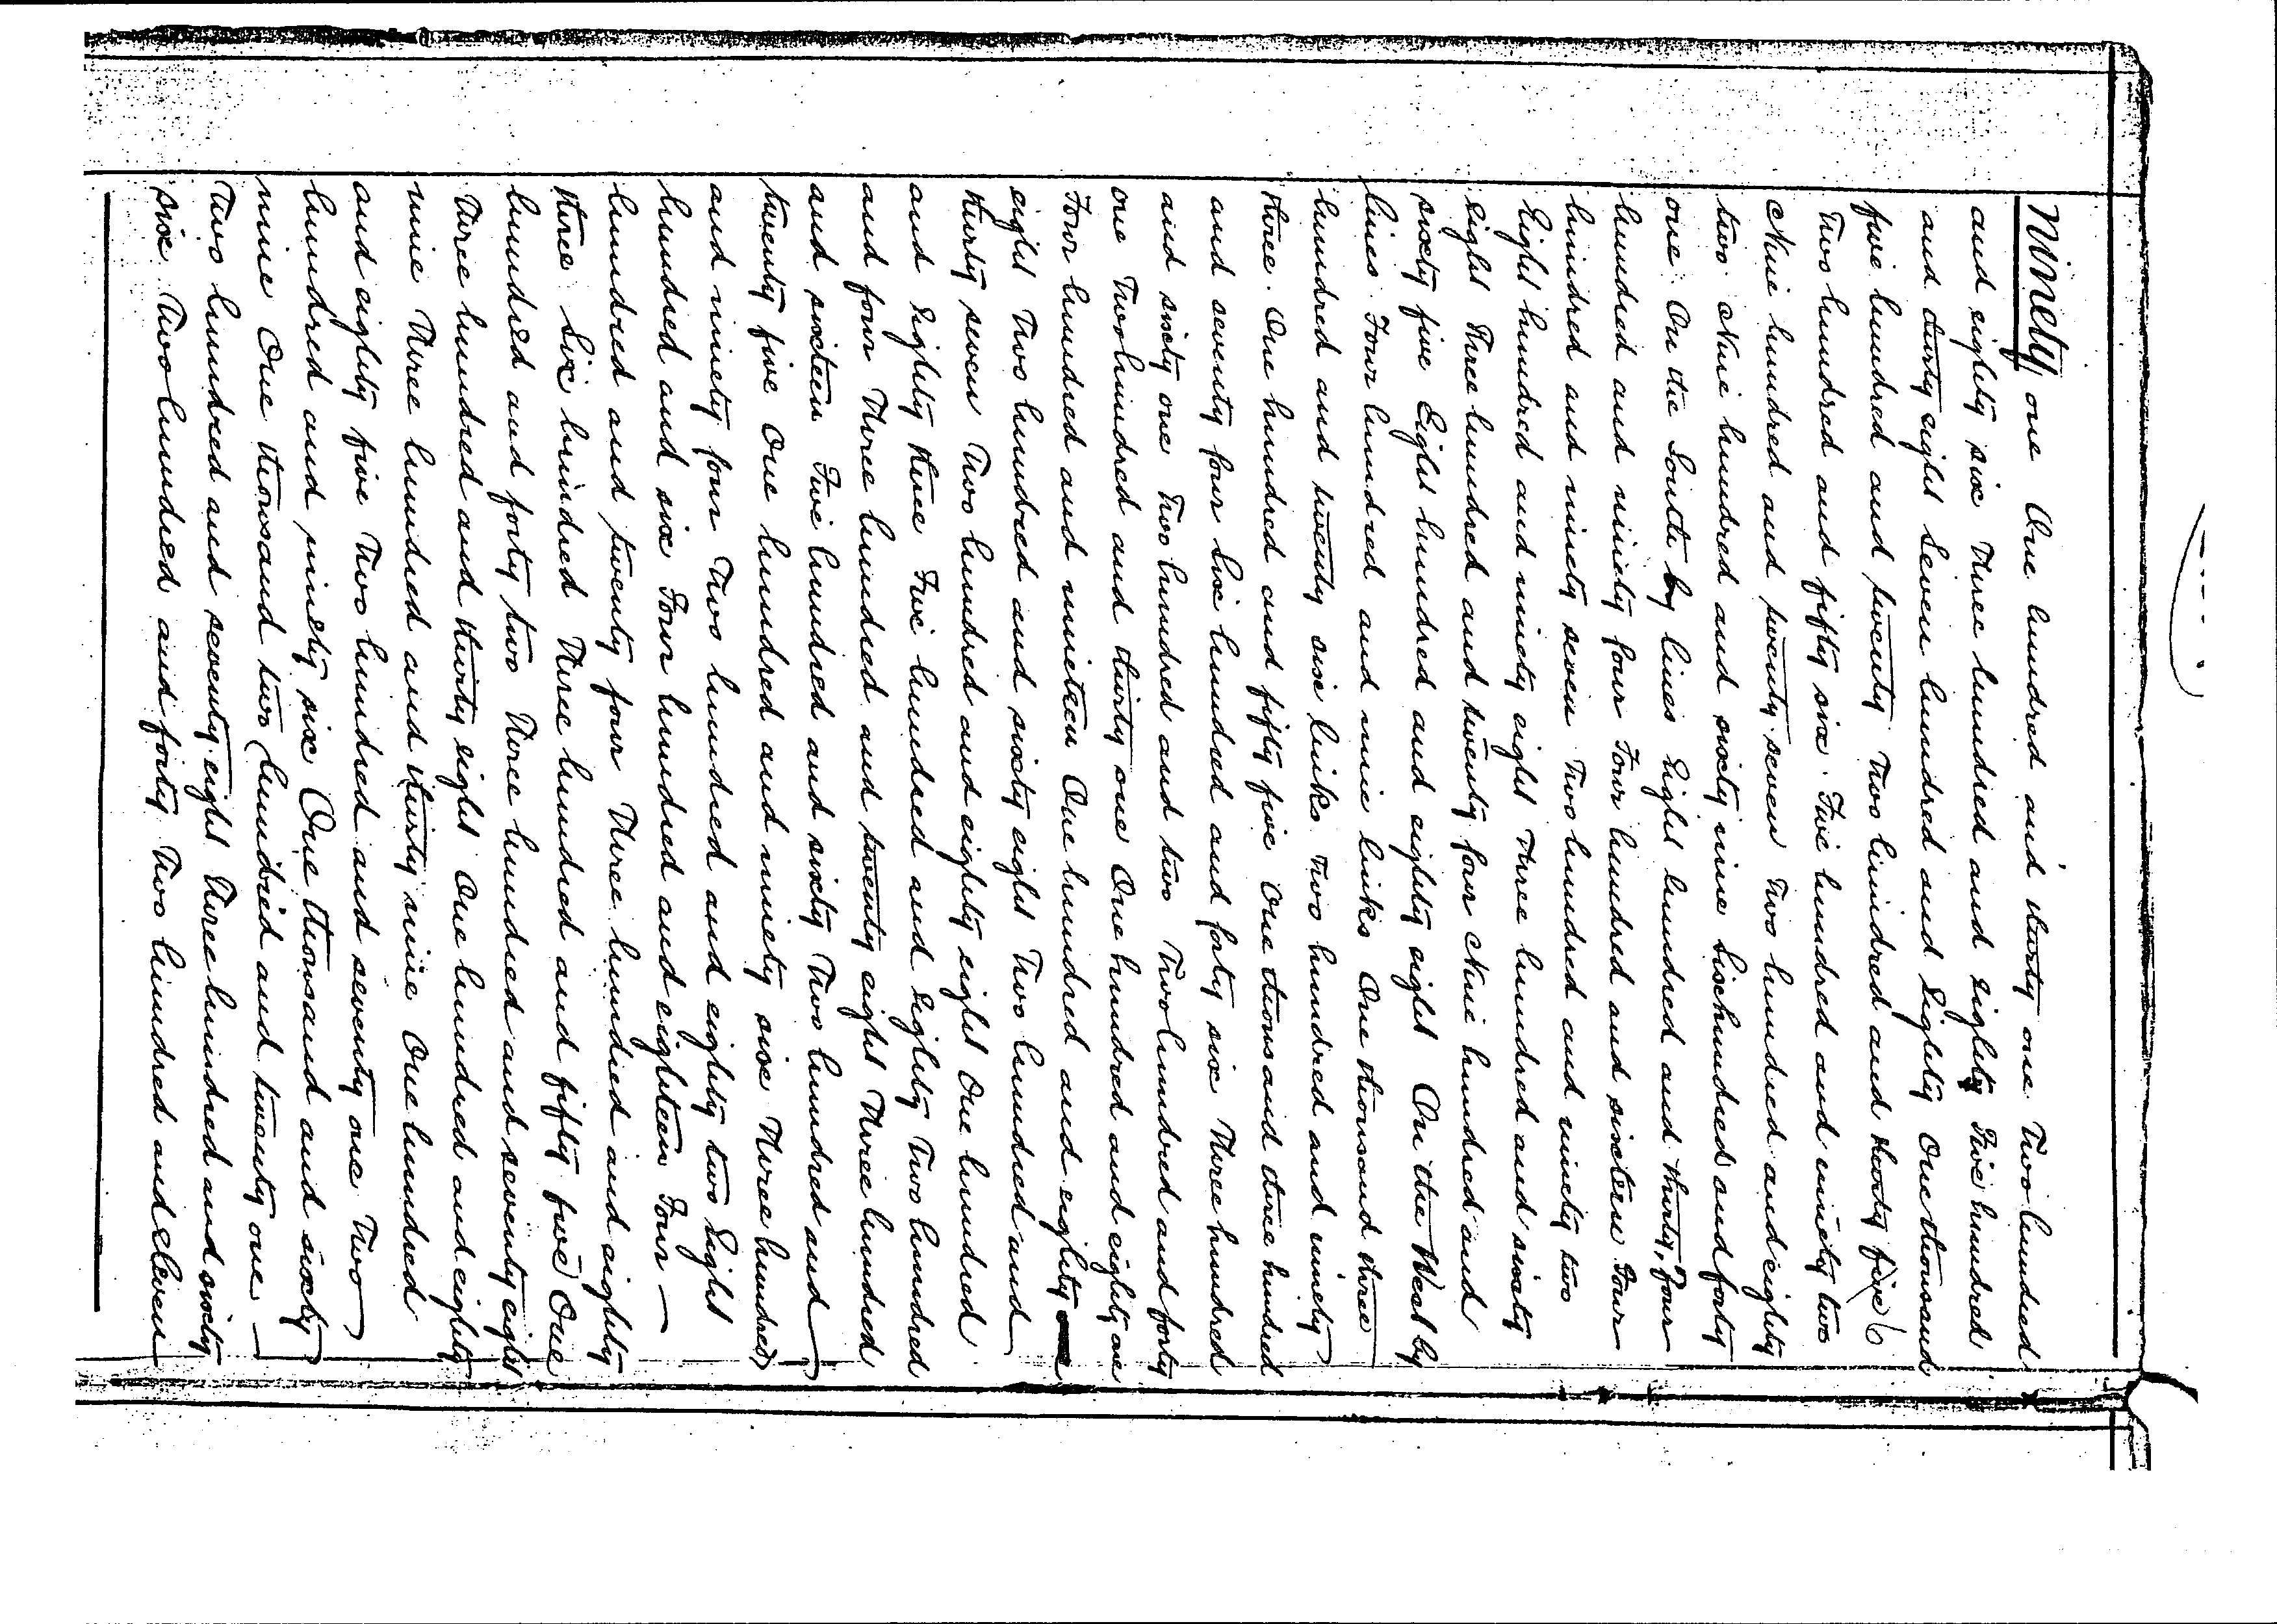 Ninety one One hundred and thirty one Two hundred
and eighty six Three hundred and eighty Five hundred
and thirty eight Seven hundred and Eighty One thousand
five hundred and twenty Two hundred and thirty five 6
Two hundred and fifty six. Five hundred and ninety two
Nine hundred and twenty seven Two hundred and eighty
two Nine hundred and sixty nine Six hundred and forty
one. On the South by lines Eight hundred and thirty, Four
hundred and ninety four Four hundred and sixteen Four
hundred and ninety seven Two hundred and ninety two
Eight hundred and ninety eight Three hundred and sixty
eight Three hundred and twenty four Nine hundred and
sixty five Eight hundred and eighty eight On the West by
lines Four hundred and nine links One thousand three
hundred and twenty six links Two hundred and ninety
three. One hundred and fifty five One thousand three hundred
and seventy four Six hundred and forty six Three hundred
and sixty one Two hundred and two Two hundred and forty
one Two hundred and thirty one One hundred and eighty one
Four hundred and nineteen One hundred and eighty
eight Two hundred and sixty eight Two hundred and
thirty seven Two hundred and eighty eight One hundred
and Eighty three Five hundred and Eighty Two hundred
and four Three hundred and twenty eight Three hundred
and sixteen Five hundred and sixty Two hundred and
twenty five One hundred and ninety six Three hundred
and ninety four Two hundred and eighty two Eight
hundred and six Four hundred and eighteen Four —
hundred and twenty four Three hundred and eighty
three Six hundred Three hundred and fifty five One
hundred and forty two Three hundred and seventy eight
Three hundred and thirty eight One hundred and eighty
nine Three hundred and thirty nine One hundred
and eighty five Two hundred and seventy one Two
hundred and ninety six One thousand and sixty
nine One thousand two hundred and twenty one —
Two hundred and seventy eight Three hundred and sixty
six Two hundred and forty Two hundred and eleven